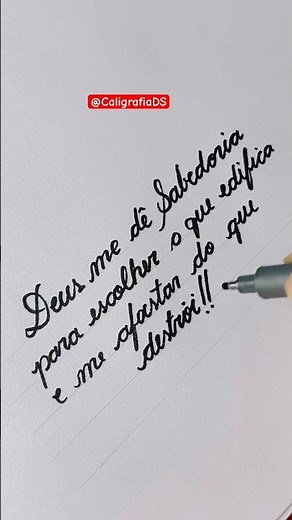 @CaligrafiaDS
Deus me dê Sabedoria
para escolher o que edifica
e me afastar do que
destrói!!